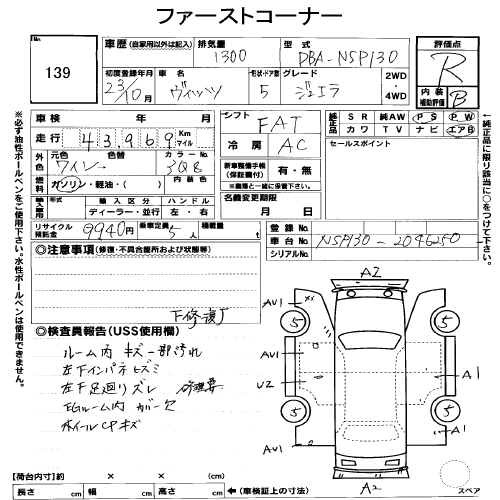 ファーストコーナー
No.
139
車歴 (自家用以外は記入)
排気量
1300
型式
DBA-NSP130
評価点
R
内装
補助評価
B
初度登録年月
23/10月
車名
ヴィッツ
形状・ドア数
5
グレード
ジュエラ
2WD
・
4WD
車検 年 月
走行 43,969 Km マイル
シフト
FAT
冷房
AC
純正品
SR 純AW PS PW
カワ TV ナビ エアB
セールスポイント
外色
元色
ワイン
色替
カラーNo.
3Q8
燃料
ガソリン・軽油・( )
内装色
新車整備手帳
(保証書付)
有・無
※書類と一緒に保管下さい。
輸入車用
形式
輸入区分
ディーラー・並行
ハンドル
左・右
名義変更期限
月 日
リサイクル
預託金
9940円
乗車定員
5人
積載量
t
登録No.
車台No.
NSP130-2046250
シリアルNo.
◎注意事項(修復・不具合箇所および状態等)
下修復了
◎検査員報告(USS使用欄)
ルーム内 キズ 一部汚れ
左下インパネヒズミ
左F足廻りズレ 修理要
EGルーム内 カバー欠
ホイールCPキズ
A2
AV1
××
5
5
AV1
U2
A1
A1
5
5
AV1
A1
A2
スペア
【荷台内寸】約 × × (cm)
長さ cm 幅 cm 高さ cm ←(車検証上の寸法)
※必ず油性ボールペンをご使用下さい。水性ボールペンは使用できません。
←純正品に限り該当に○をつけて下さい。